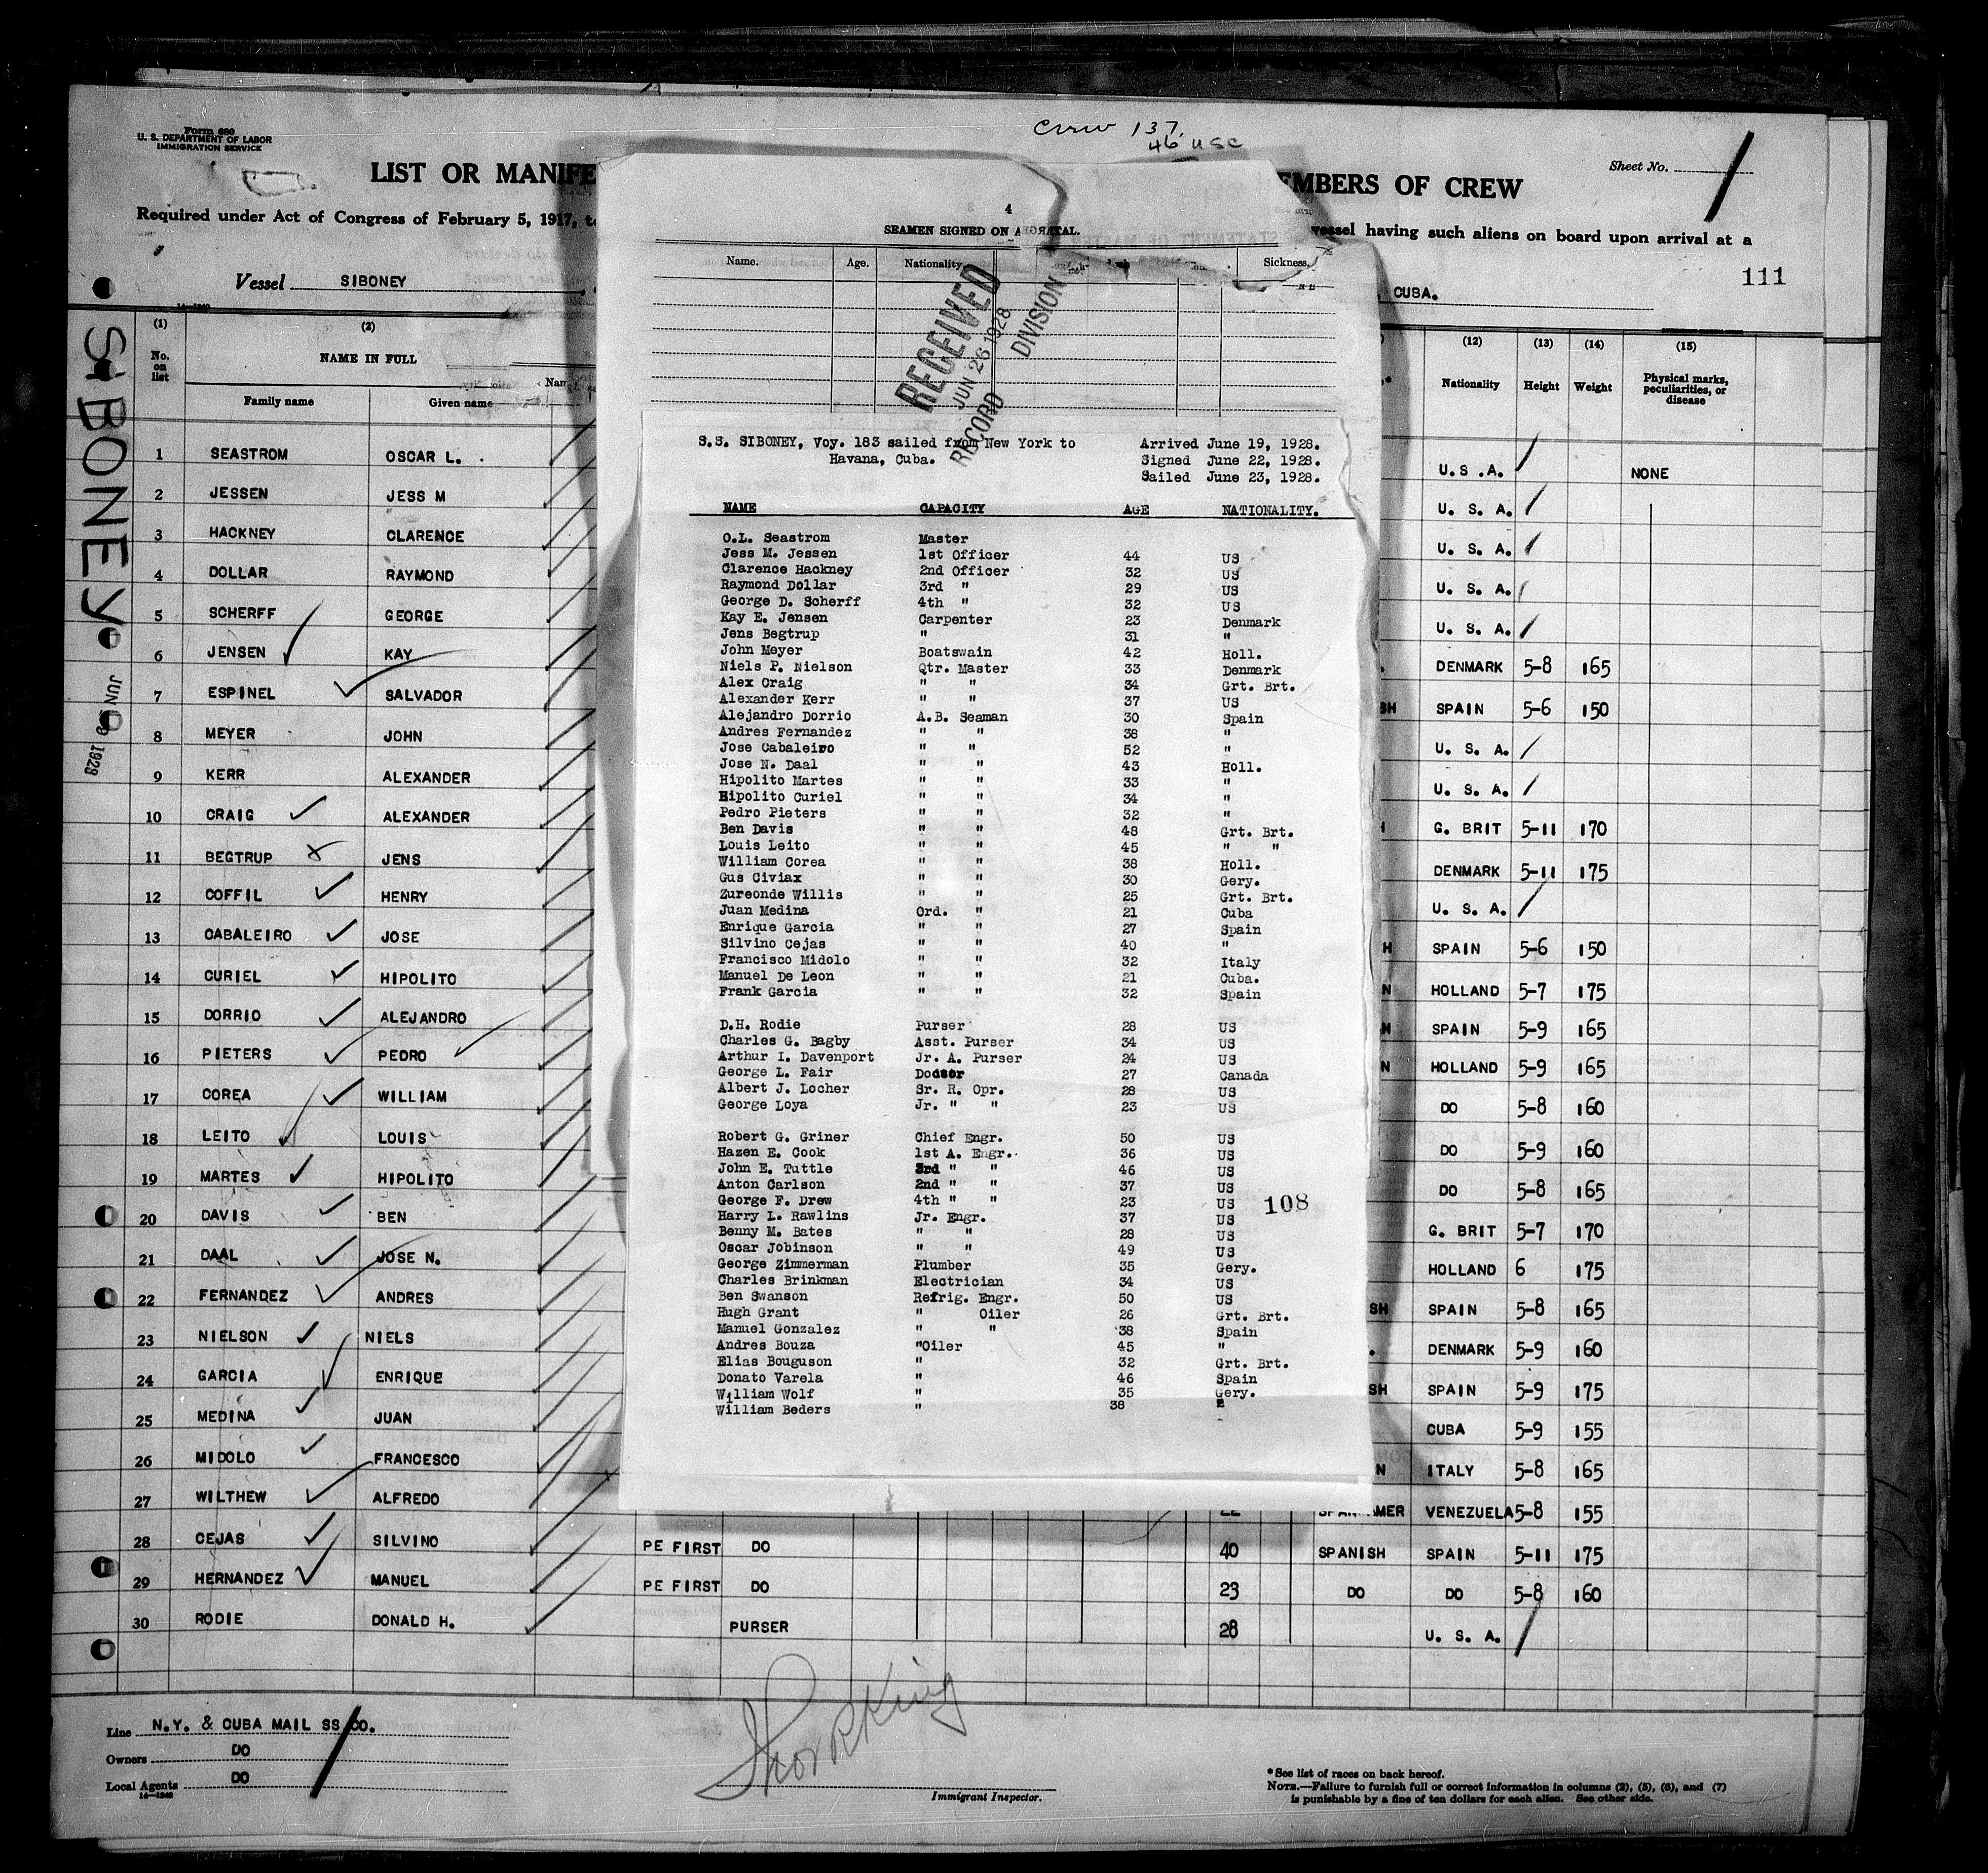 Form 680
U. S. DEPARTMENT OF LABOR
IMMIGRATION SERVICE
Crew 137.
46 USC
LIST OR MANIFE
EMBERS OF CREW
Sheet No. 1
Required under Act of Congress of February 5, 1917, to
vessel having such aliens on board upon arrival at a
111
Vessel SIBONEY
, CUBA.
SIBONEY
JUN 19 1928
4
SEAMEN SIGNED ON
Name. Age. Nationality Sickness.
RECEIVED
JUN 26 1928
RECORD DIVISION
S.S. SIBONEY, Voy. 183 sailed from New York to Arrived June 19, 1928.
Havana, Cuba. Signed June 22, 1928.
Sailed June 23, 1928.
NAME CAPACITY AGE NATIONALITY.
O.L. Seastrom Master
Jess M. Jessen 1st Officer 44 US
Clarence Hackney 2nd Officer 32 US
Raymond Dollar 3rd " 29 US
George D. Scherff 4th " 32 US
Kay E. Jensen Carpenter 23 Denmark
Jens Begtrup " 31 "
John Meyer Boatswain 42 Holl.
Niels P. Nielson Qtr. Master 33 Denmark
Alex Craig " " 34 Grt. Brt.
Alexander Kerr " " 37 US
Alejandro Dorrio A.B. Seaman 30 Spain
Andres Fernandez " " 38 "
Jose Cabaleiro " " 52 "
Jose N. Daal " " 43 Holl.
Hipolito Martes " " 33 "
Hipolito Curiel " " 34 "
Pedro Pieters " " 32 "
Ben Davis " " 48 Grt. Brt.
Louis Leito " " 45 " "
William Corea " " 38 Holl.
Gus Civiax " " 30 Gery.
Zureonde Willis " " 25 Grt. Brt.
Juan Medina Ord. " 21 Cuba
Enrique Garcia " " 27 Spain
Silvino Cejas " " 40 "
Francisco Midolo " " 32 Italy
Manuel De Leon " " 21 Cuba.
Frank Garcia " " 32 Spain
D.H. Rodie Purser 28 US
Charles G. Bagby Asst. Purser 34 US
Arthur I. Davenport Jr. A. Purser 24 US
George L. Fair Doctor 27 Canada
Albert J. Locher Sr. R. Opr. 28 US
George Loya Jr. " " 23 US
Robert G. Griner Chief Engr. 50 US
Hazen E. Cook 1st A. Engr. 36 US
John E. Tuttle 3rd " " 46 US
Anton Carlson 2nd " " 37 US
George F. Drew 4th " " 23 US
108
Harry L. Rawlins Jr. Engr. 37 US
Benny M. Bates " " 28 US
Oscar Jobinson " " 49 US
George Zimmerman Plumber 35 Gery.
Charles Brinkman Electrician 34 US
Ben Swanson Refrig. Engr. 50 US
Hugh Grant " Oiler 26 Grt. Brt.
Manuel Gonzalez " " 38 Spain
Andres Bouza "Oiler 45 "
Elias Bouguson " 32 Grt. Brt.
Donato Varela " 46 Spain
William Wolf " 35 Gery.
William Beders " 38
(1) (2) (12) (13) (14) (15)
No. on list NAME IN FULL Nationality Height Weight Physical marks, peculiarities, or disease
Family name Given name
1 SEASTROM OSCAR L. U.S.A. NONE
2 JESSEN JESS M U. S. A.
3 HACKNEY CLARENCE U. S. A.
4 DOLLAR RAYMOND U. S. A.
5 SCHERFF GEORGE U. S. A.
6 JENSEN KAY DENMARK 5-8 165
7 ESPINEL SALVADOR SH SPAIN 5-6 150
8 MEYER JOHN U. S. A.
9 KERR ALEXANDER U. S. A.
10 CRAIG ALEXANDER H G. BRIT 5-11 170
11 BEGTRUP JENS DENMARK 5-11 175
12 COFFIL HENRY U. S. A.
13 CABALEIRO JOSE H SPAIN 5-6 150
14 CURIEL HIPOLITO N HOLLAND 5-7 175
15 DORRIO ALEJANDRO H SPAIN 5-9 165
16 PIETERS PEDRO N HOLLAND 5-9 165
17 COREA WILLIAM DO 5-8 160
18 LEITO LOUIS DO 5-9 160
19 MARTES HIPOLITO DO 5-8 165
20 DAVIS BEN G. BRIT 5-7 170
21 DAAL JOSE N. HOLLAND 6 175
22 FERNANDEZ ANDRES SH SPAIN 5-8 165
23 NIELSON NIELS DENMARK 5-9 160
24 GARCIA ENRIQUE SH SPAIN 5-9 175
25 MEDINA JUAN CUBA 5-9 155
26 MIDOLO FRANCESCO N ITALY 5-8 165
27 WILTHEW ALFREDO 22 SPAN AMER VENEZUELA 5-8 155
28 CEJAS SILVINO PE FIRST DO 40 SPANISH SPAIN 5-11 175
29 HERNANDEZ MANUEL PE FIRST DO 23 DO DO 5-8 160
30 RODIE DONALD H. PURSER 28 U. S. A.
Line N.Y. & CUBA MAIL SS CO.
Owners DO
Local Agents DO
14—1240
Immigrant Inspector.
*See list of races on back hereof.
NOTE.—Failure to furnish full or correct information in columns (2), (5), (6), and (7)
is punishable by a fine of ten dollars for each alien. See other side.